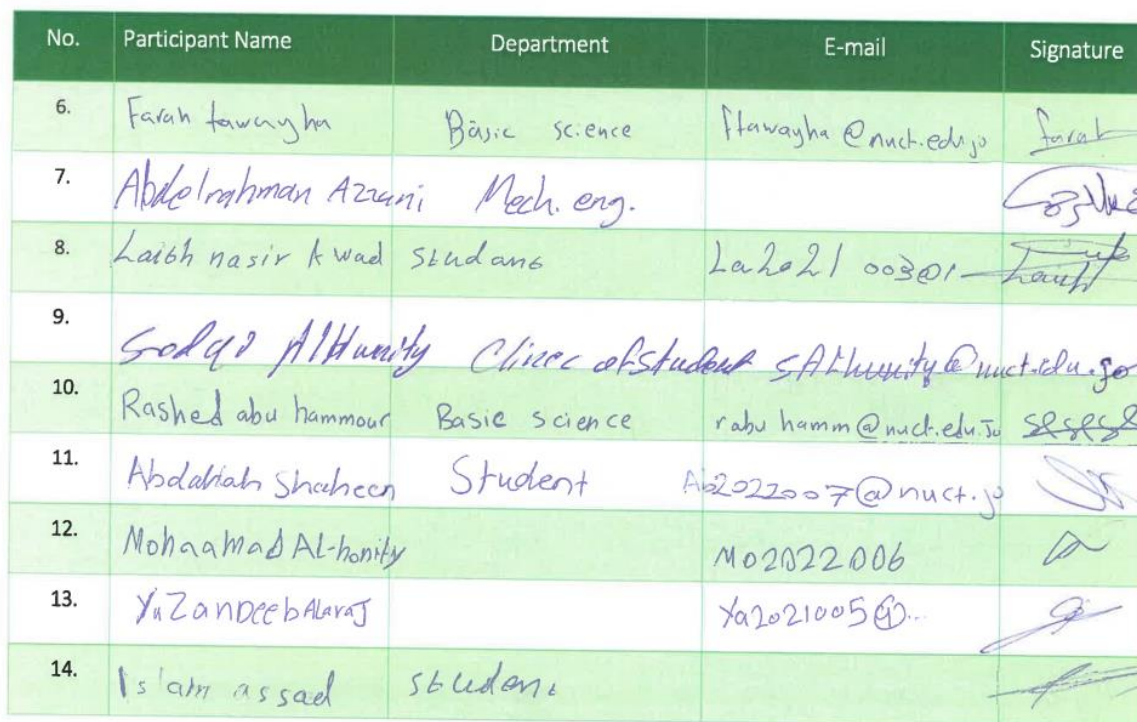 No. Participant Name Department E-mail Signature
6. Farah tawayha Basic science ftawayha@nuct.edu.jo farah
7. Abdelrahman Azzani Mech. eng.
8. Laith nasir Awad Student La2021003@1- Laith
9. Sodqi AlHunity of student sAlhunity@nuct.edu.jo
10. Rashed abu hammour Basic science rabu hamm@nuct.edu.Jo
11. Abdallah Shaheen Student Ab2022007@nuct.jo
12. Mohaamad AL-honity Mo2022006
13. YaZanDeebAlaraJ Ya2021005@...
14. Islam assad student